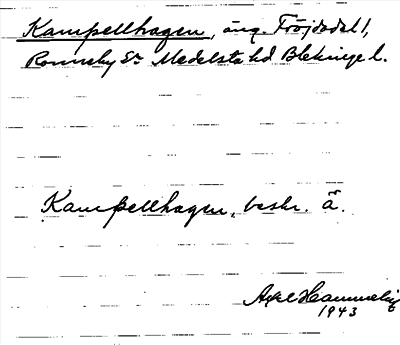 Kampellhagen, äng. Fröjdadal 1,
Ronneby Sn Medelsta hd Blekinge l.
Kampellhagen, beskr. å.
Axel
1943